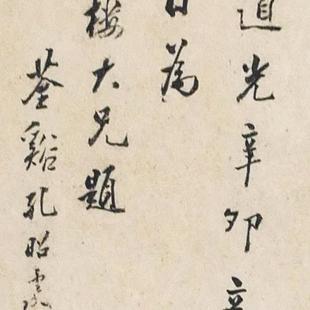 道光辛卯
日為
樓大兄題
荃谿孔昭